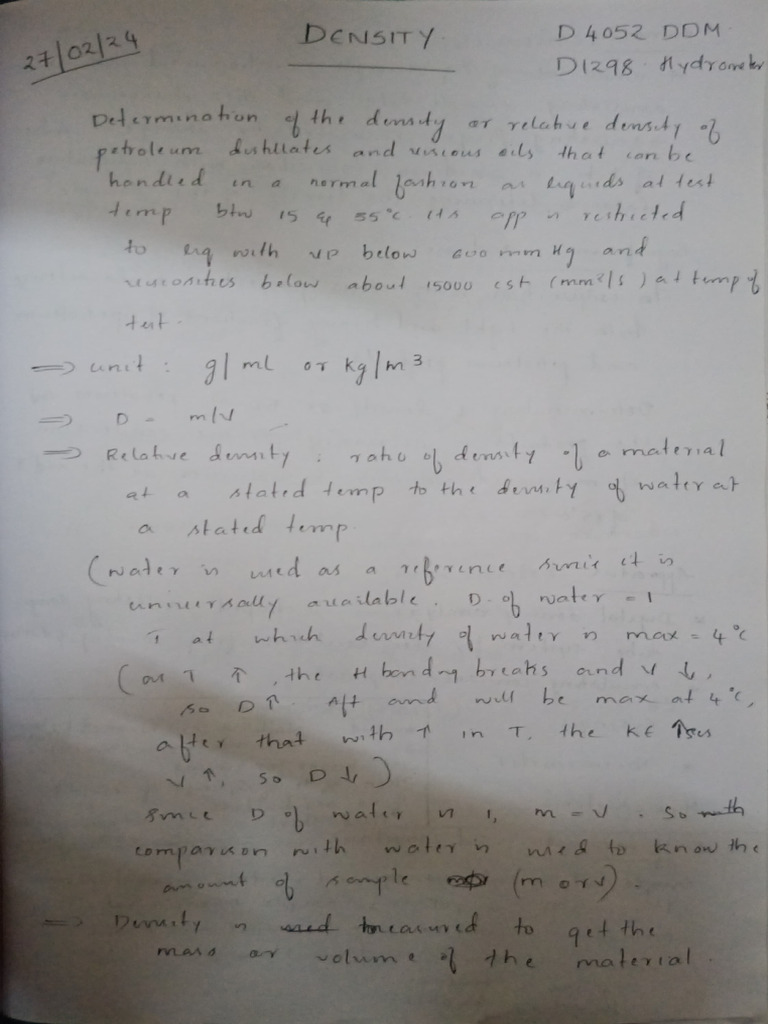 27/02/24
DENSITY
D 4052 DDM
D1298 Hydrometer
Determination of the density or relative density of
petroleum distillates and viscous oils that can be
handled in a normal fashion as liquids at test
temp btw 15 & 35°C Its app is restricted
to liq with VP below 600 mm Hg and
viscosities below about 15000 cst (mm²/s) at temp of
test.
⇒ unit : g/ml or kg/m³
⇒ D = m/V
⇒ Relative density : ratio of density of a material
at a stated temp to the density of water at
a stated temp.
(water is used as a reference since it is
universally available. D of water = 1
T at which density of water is max = 4°C
(as T ↑, the H bondng breaks and V ↓,
so D ↑. Aft and will be max at 4°C,
after that with ↑ in T, the KE ↑ses
V ↑, so D ↓)
Since D of water is 1, m = V. So with
comparison with water is used to know the
amount of sample (m or v).
⇒ Density is used measured to get the
mass or volume of the material.